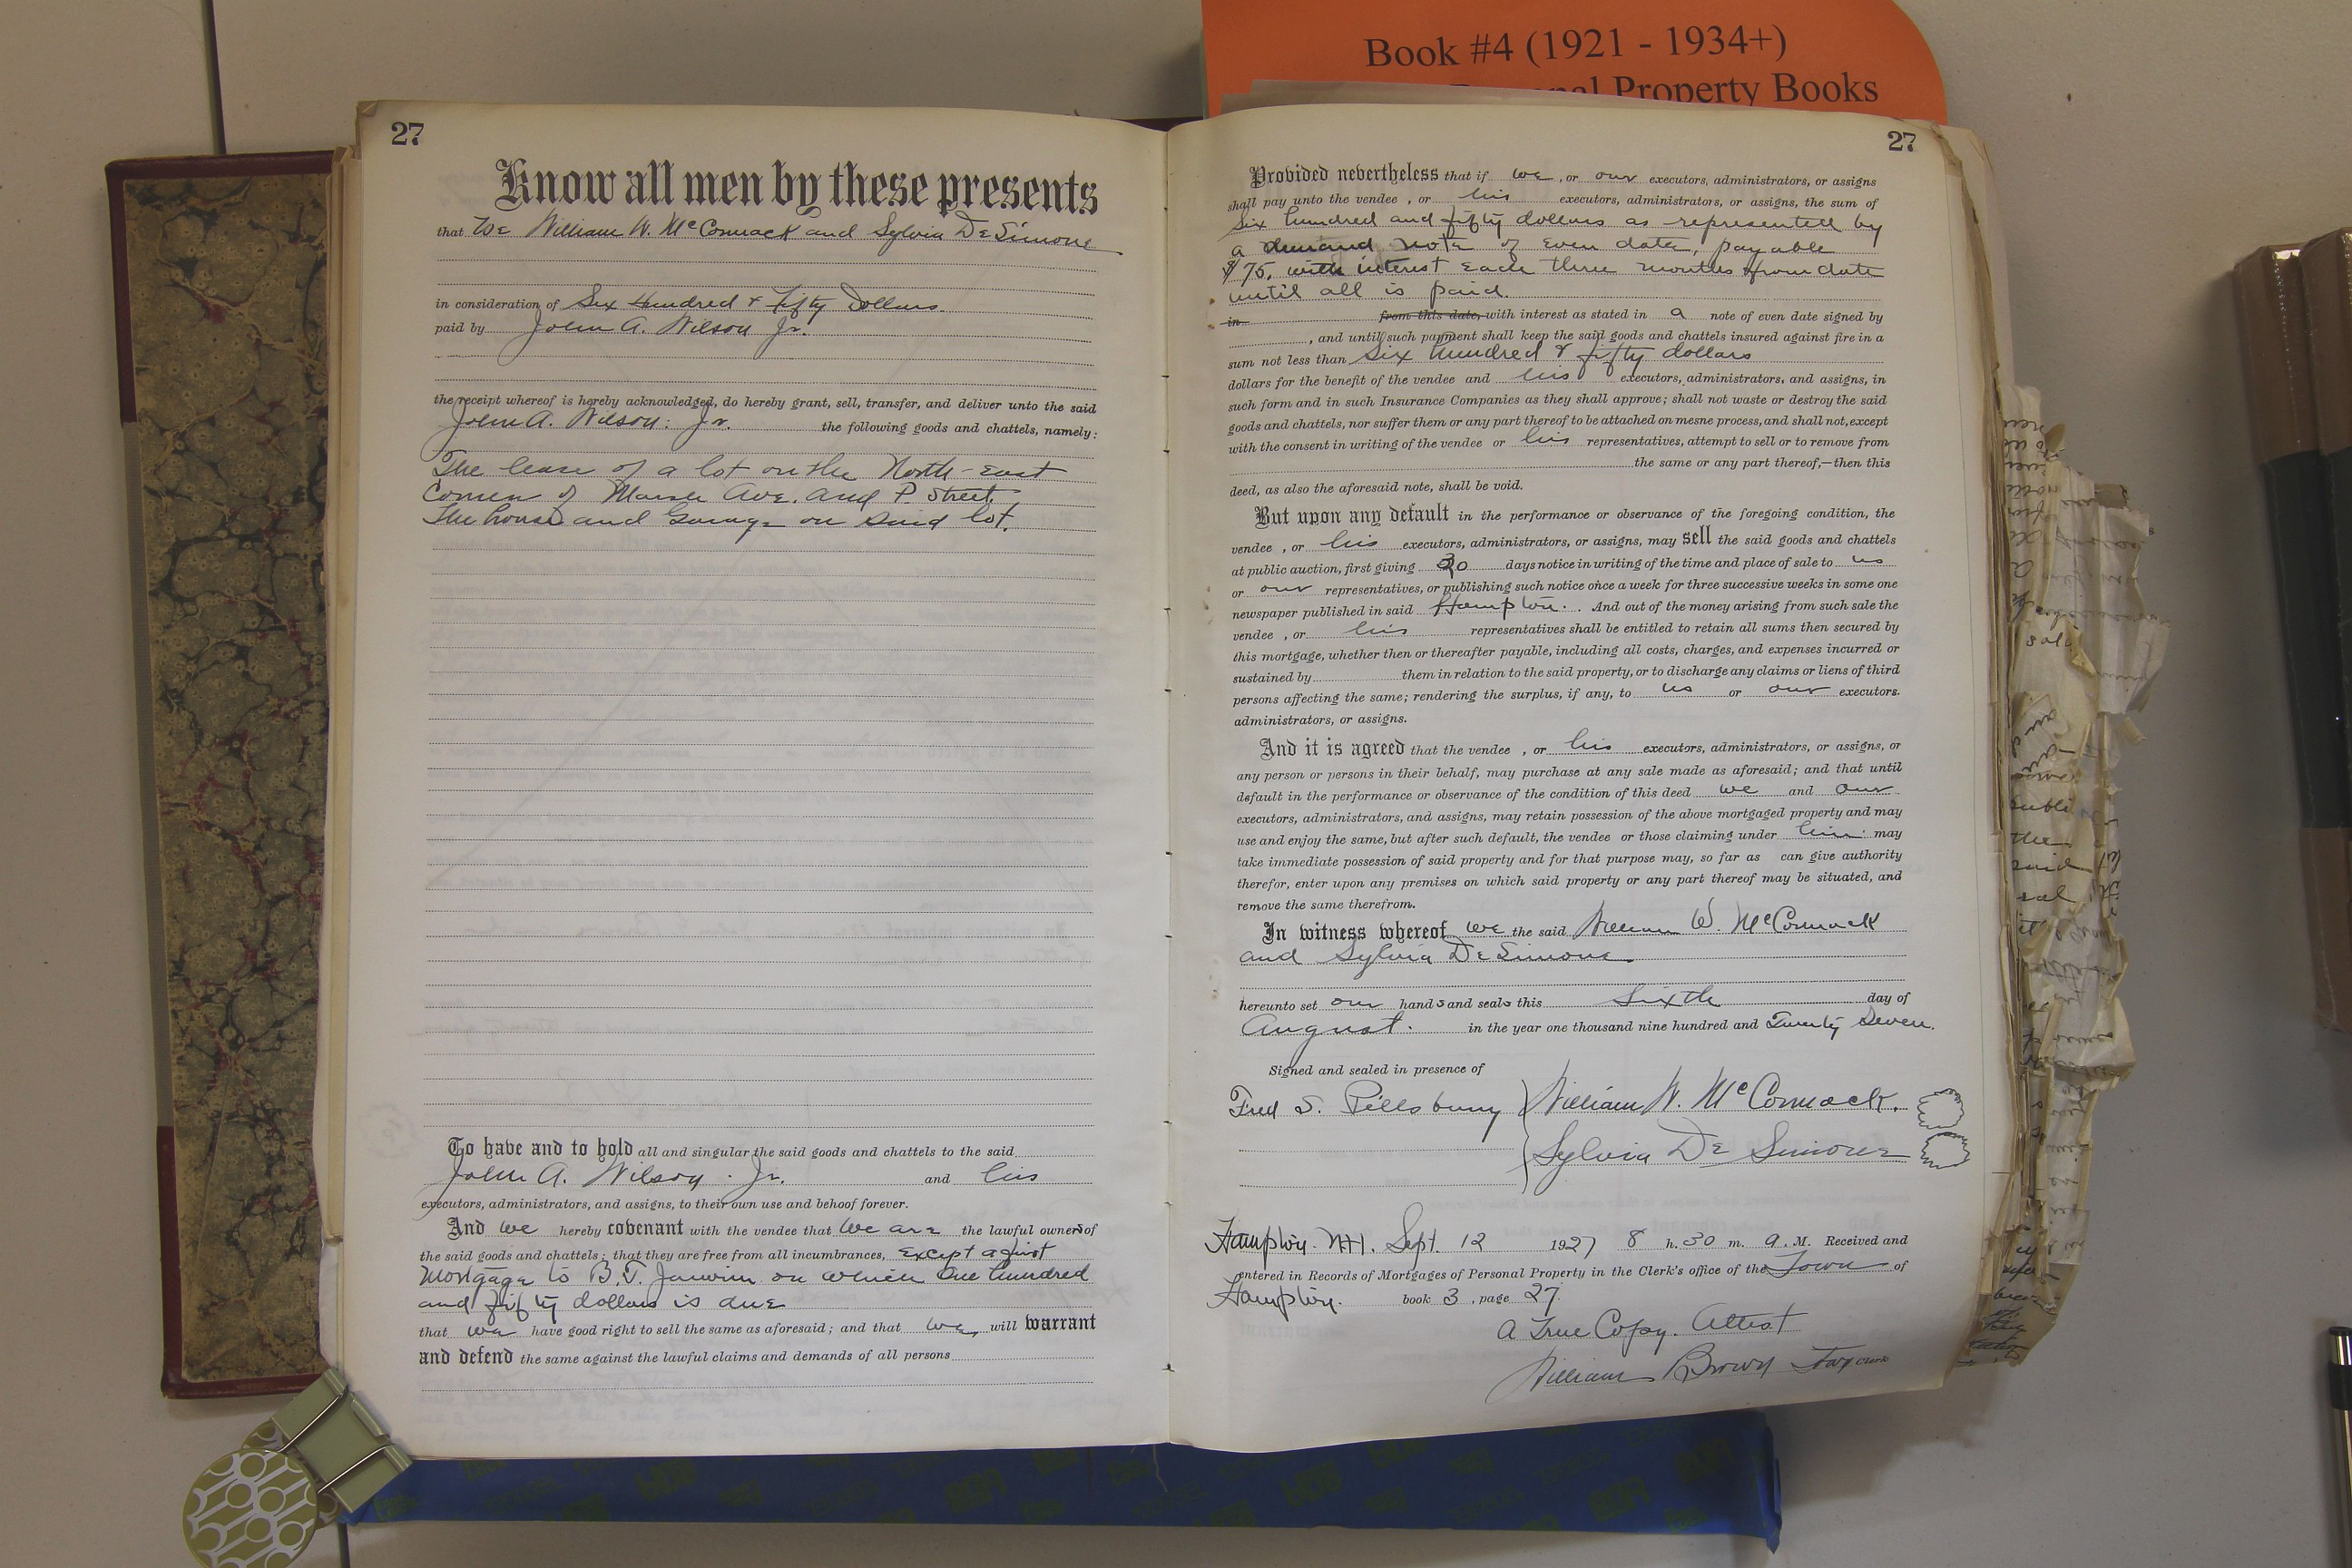 Book #4 (1921 - 1934+)
Personal Property Books
27
Know all men by these presents
that We William W. McCormack and Sylvia DeSimone
in consideration of Six Hundred & Fifty Dollars
paid by John A. Wilson Jr.
the receipt whereof is hereby acknowledged, do hereby grant, sell, transfer, and deliver unto the said
John A. Wilson. Jr. the following goods and chattels, namely:
The lease of a lot on the North-East
Corner of Marsh Ave. and P. Street.
The house and Garage on said lot.
To have and to hold all and singular the said goods and chattels to the said
John A. Wilson. Jr. and his
executors, administrators, and assigns, to their own use and behoof forever.
And we hereby covenant with the vendee that we are the lawful owners of
the said goods and chattels; that they are free from all incumbrances, except against
Mortgage to B.T. Janvrin on which One hundred
and fifty dollars is due
that we have good right to sell the same as aforesaid; and that we will warrant
and defend the same against the lawful claims and demands of all persons
27
Provided nevertheless that if we, or our executors, administrators, or assigns
shall pay unto the vendee , or his executors, administrators, or assigns, the sum of
Six hundred and fifty dollars as represented by
a demand note of even date, payable
$75. with interest each three months from date
until all is paid.
in from this date, with interest as stated in a note of even date signed by
, and until such payment shall keep the said goods and chattels insured against fire in a
sum not less than Six hundred & fifty dollars
dollars for the benefit of the vendee and his executors, administrators, and assigns, in
such form and in such Insurance Companies as they shall approve; shall not waste or destroy the said
goods and chattels, nor suffer them or any part thereof to be attached on mesne process, and shall not, except
with the consent in writing of the vendee or his representatives, attempt to sell or to remove from
the same or any part thereof,—then this
deed, as also the aforesaid note, shall be void.
But upon any default in the performance or observance of the foregoing condition, the
vendee , or his executors, administrators, or assigns, may sell the said goods and chattels
at public auction, first giving 30 days notice in writing of the time and place of sale to us
or our representatives, or publishing such notice once a week for three successive weeks in some one
newspaper published in said Hampton. . And out of the money arising from such sale the
vendee , or his representatives shall be entitled to retain all sums then secured by
this mortgage, whether then or thereafter payable, including all costs, charges, and expenses incurred or
sustained by them in relation to the said property, or to discharge any claims or liens of third
persons affecting the same; rendering the surplus, if any, to us or our executors.
administrators, or assigns.
And it is agreed that the vendee , or his executors, administrators, or assigns, or
any person or persons in their behalf, may purchase at any sale made as aforesaid; and that until
default in the performance or observance of the condition of this deed we and our
executors, administrators, and assigns, may retain possession of the above mortgaged property and may
use and enjoy the same, but after such default, the vendee or those claiming under him may
take immediate possession of said property and for that purpose may, so far as can give authority
therefor, enter upon any premises on which said property or any part thereof may be situated, and
remove the same therefrom.
In witness whereof we the said William W. McCormack
and Sylvia DeSimone
hereunto set our hands and seals this Sixth day of
August. in the year one thousand nine hundred and Twenty Seven.
Signed and sealed in presence of
Fred S. Pillsbury William W. McCormack.
Sylvia De Simone
Hampton. NH. Sept. 12 1927 8 h. 30 m. a. M. Received and
entered in Records of Mortgages of Personal Property in the Clerk's office of the Town of
Hampton. book 3, page 27.
A True Copy. Attest
William Brown Town Clerk